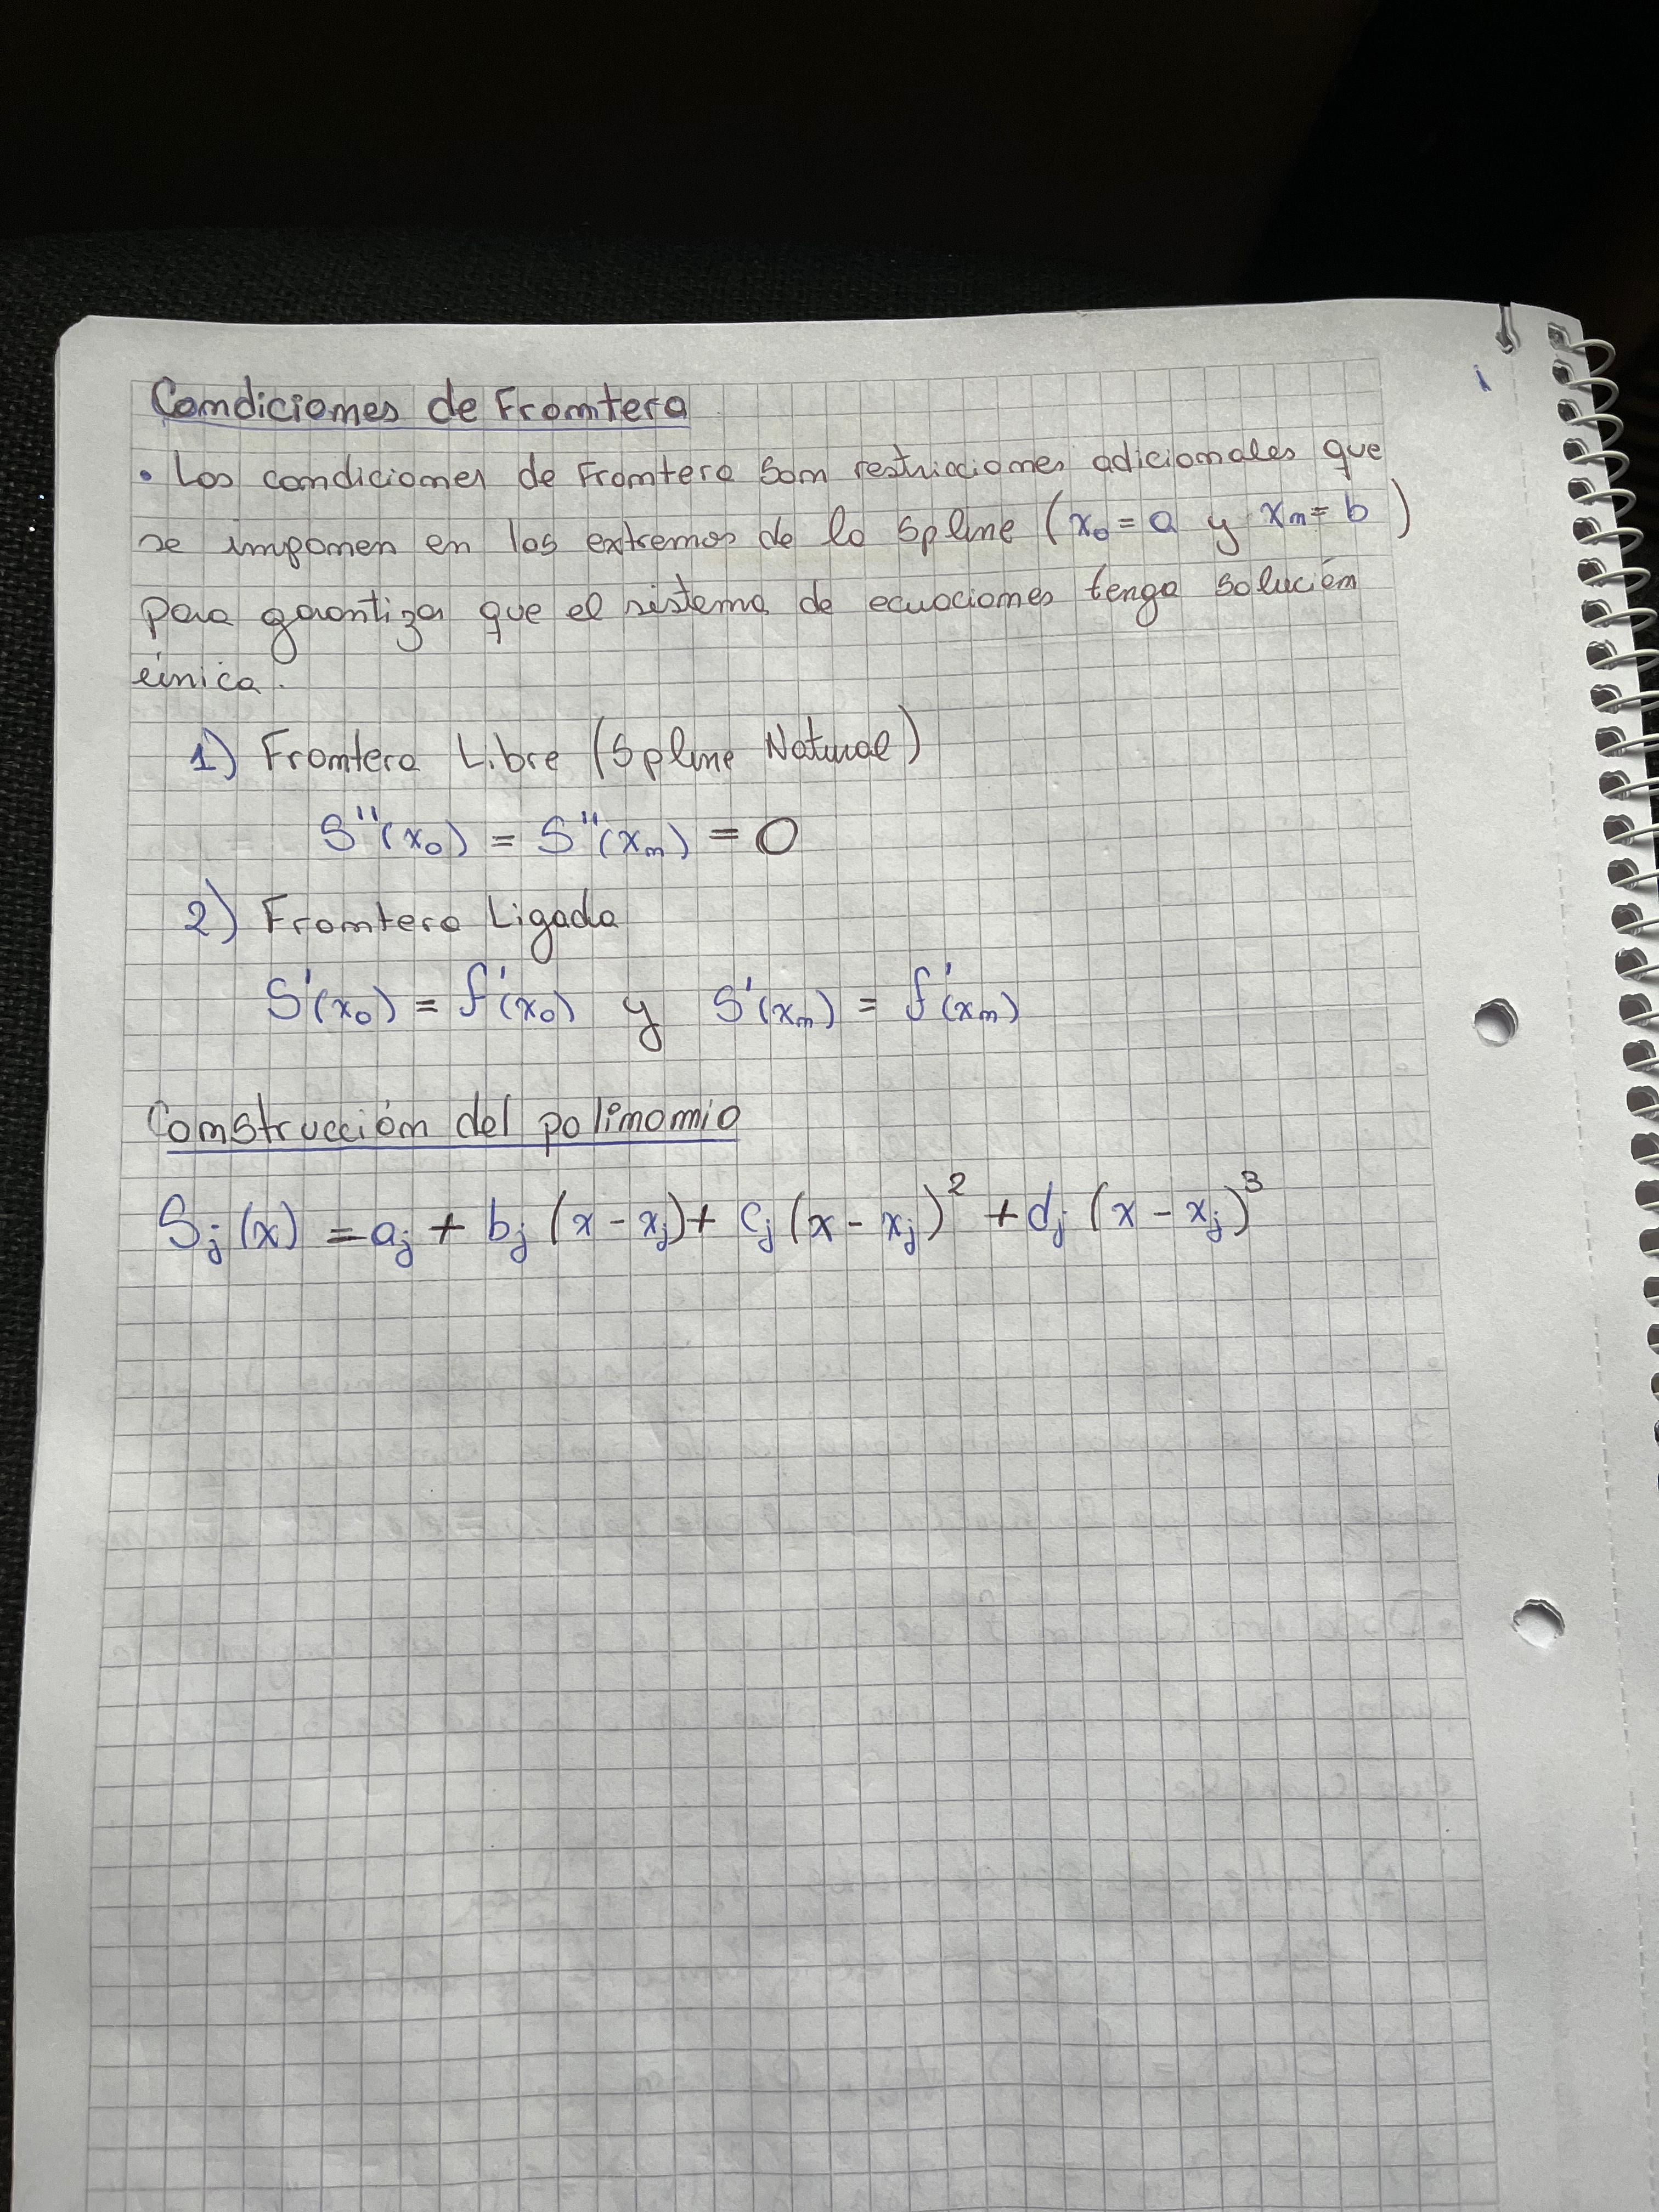 Condiciones de Frontera
• Las condiciones de Frontera son restricciones adicionales que
se imponen en los extremos de la spline (x₀ = a y xₙ = b)
para garantizar que el sistema de ecuaciones tenga solución
única.
1) Frontera Libre (Spline Natural)
S''(x₀) = S''(xₙ) = 0
2) Frontera Ligada
S'(x₀) = f'(x₀) y S'(xₙ) = f'(xₙ)
Construcción del polinomio
Sⱼ(x) = aⱼ + bⱼ(x - xⱼ) + cⱼ(x - xⱼ)² + dⱼ(x - xⱼ)³